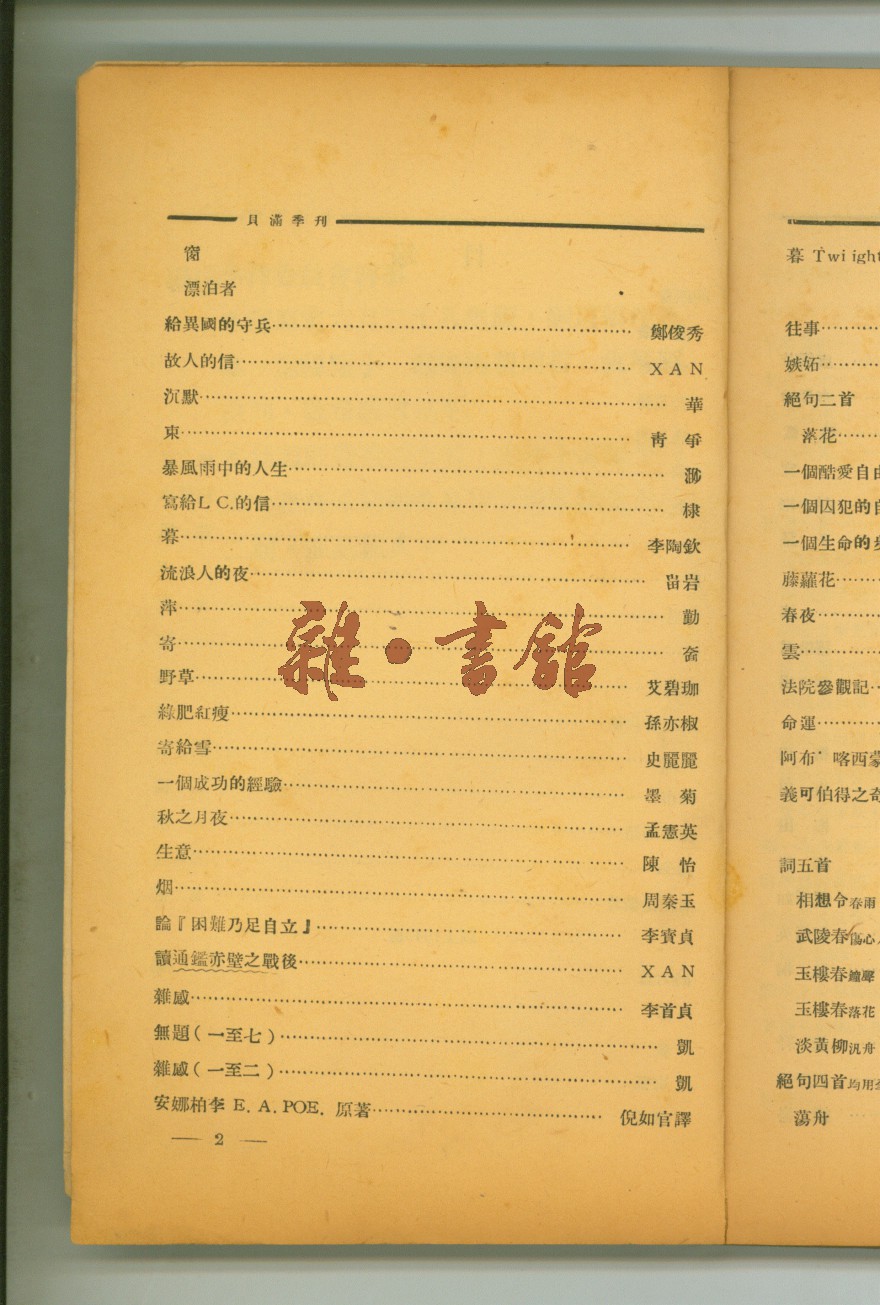 貝滿季刊
窗
漂泊者
給異國的守兵 鄭俊秀
故人的信 XAN
沉默 華
東 靑爭
暴風雨中的人生
寫給L C.的信 棣
暮 李陶欽
流浪人的夜 岩
萍 勤
寄
野草 艾碧珈
綠肥紅瘦 孫亦椒
寄給雪 史麗麗
一個成功的經驗 墨菊
秋之月夜 孟憲英
生意 陳怡
烟 周秦玉
論『困難乃足自立』 李寶貞
讀通鑑赤壁之戰後 XAN
雜感 李首貞
無題(一至七) 凱
雜感(一至二) 凱
安娜柏李 E. A. POE. 原著 倪如官譯
— 2 —
雜·書館
暮 Twi ight
往事
嫉妬
絕句二首
落花
一個酷愛自由
一個囚犯的自
一個生命的
藤蘿花
春夜
雲
法院參觀記
命運
阿布 喀西蒙
義可伯得之奇
詞五首
相想令春雨
武陵春傷心人
玉樓春
玉樓春落花
淡黃柳汎舟
絕句四首均用
蕩舟